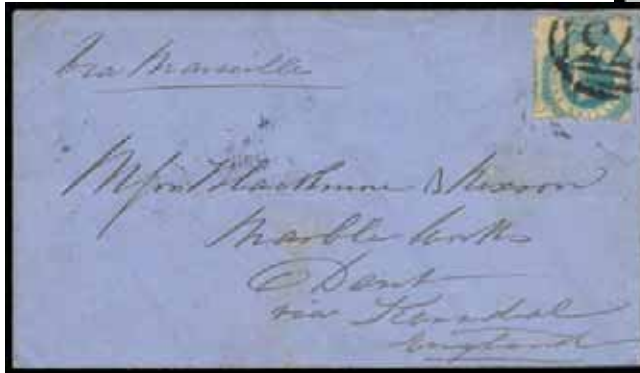 Via Marseilles
Messrs Blackmore & Nixson
Marble Works
Dent
via Kendal
England